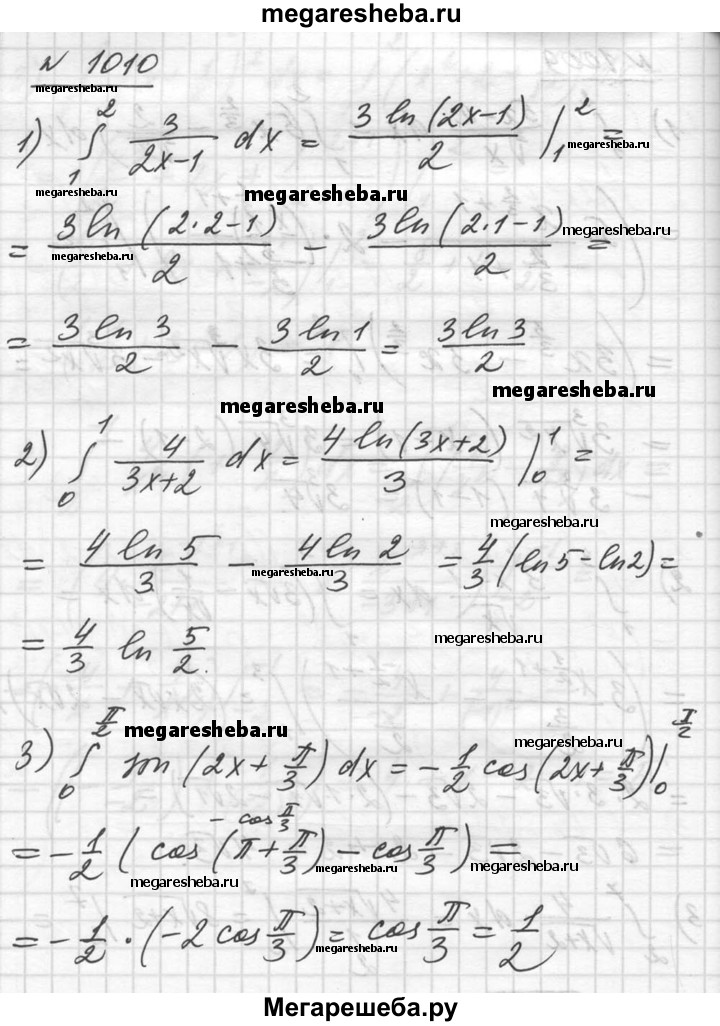 megaresheba.ru
№ 1010
megaresheba.ru
1) ∫₁² 3/(2x-1) dx = 3 ln (2x-1)/2 |₁² =
megaresheba.ru
megaresheba.ru megaresheba.ru
= 3 ln (2·2-1)/2 - 3 ln (2·1-1)/2 =
megaresheba.ru megaresheba.ru
= 3 ln 3/2 - 3 ln 1/2 = 3 ln 3/2
megaresheba.ru
megaresheba.ru
2) ∫₀¹ 4/(3x+2) dx = 4 ln (3x+2)/3 |₀¹ =
megaresheba.ru
= 4 ln 5/3 - 4 ln 2/3 = 4/3 (ln 5 - ln 2) =
megaresheba.ru
= 4/3 ln 5/2.
megaresheba.ru
megaresheba.ru megaresheba.ru
3) ∫₀^(π/2) sin (2x + π/3) dx = -1/2 cos (2x + π/3) |₀^(π/2)
- cos π/3
= -1/2 ( cos (π + π/3) - cos π/3 ) =
megaresheba.ru megaresheba.ru
= -1/2 · (-2 cos π/3) = cos π/3 = 1/2
megaresheba.ru megaresheba.ru
Мегарешеба.ру